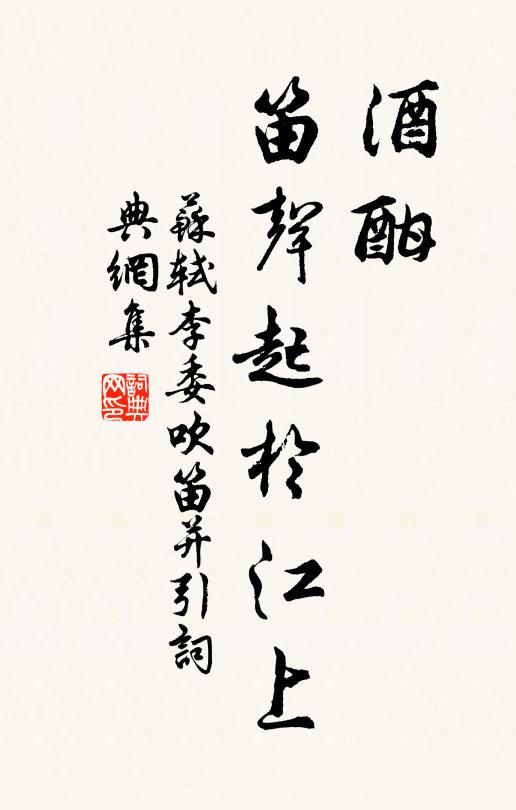 酒酣
笛聲起於江上
蘇軾李委吹笛并引詞
典網集
詞典
网印